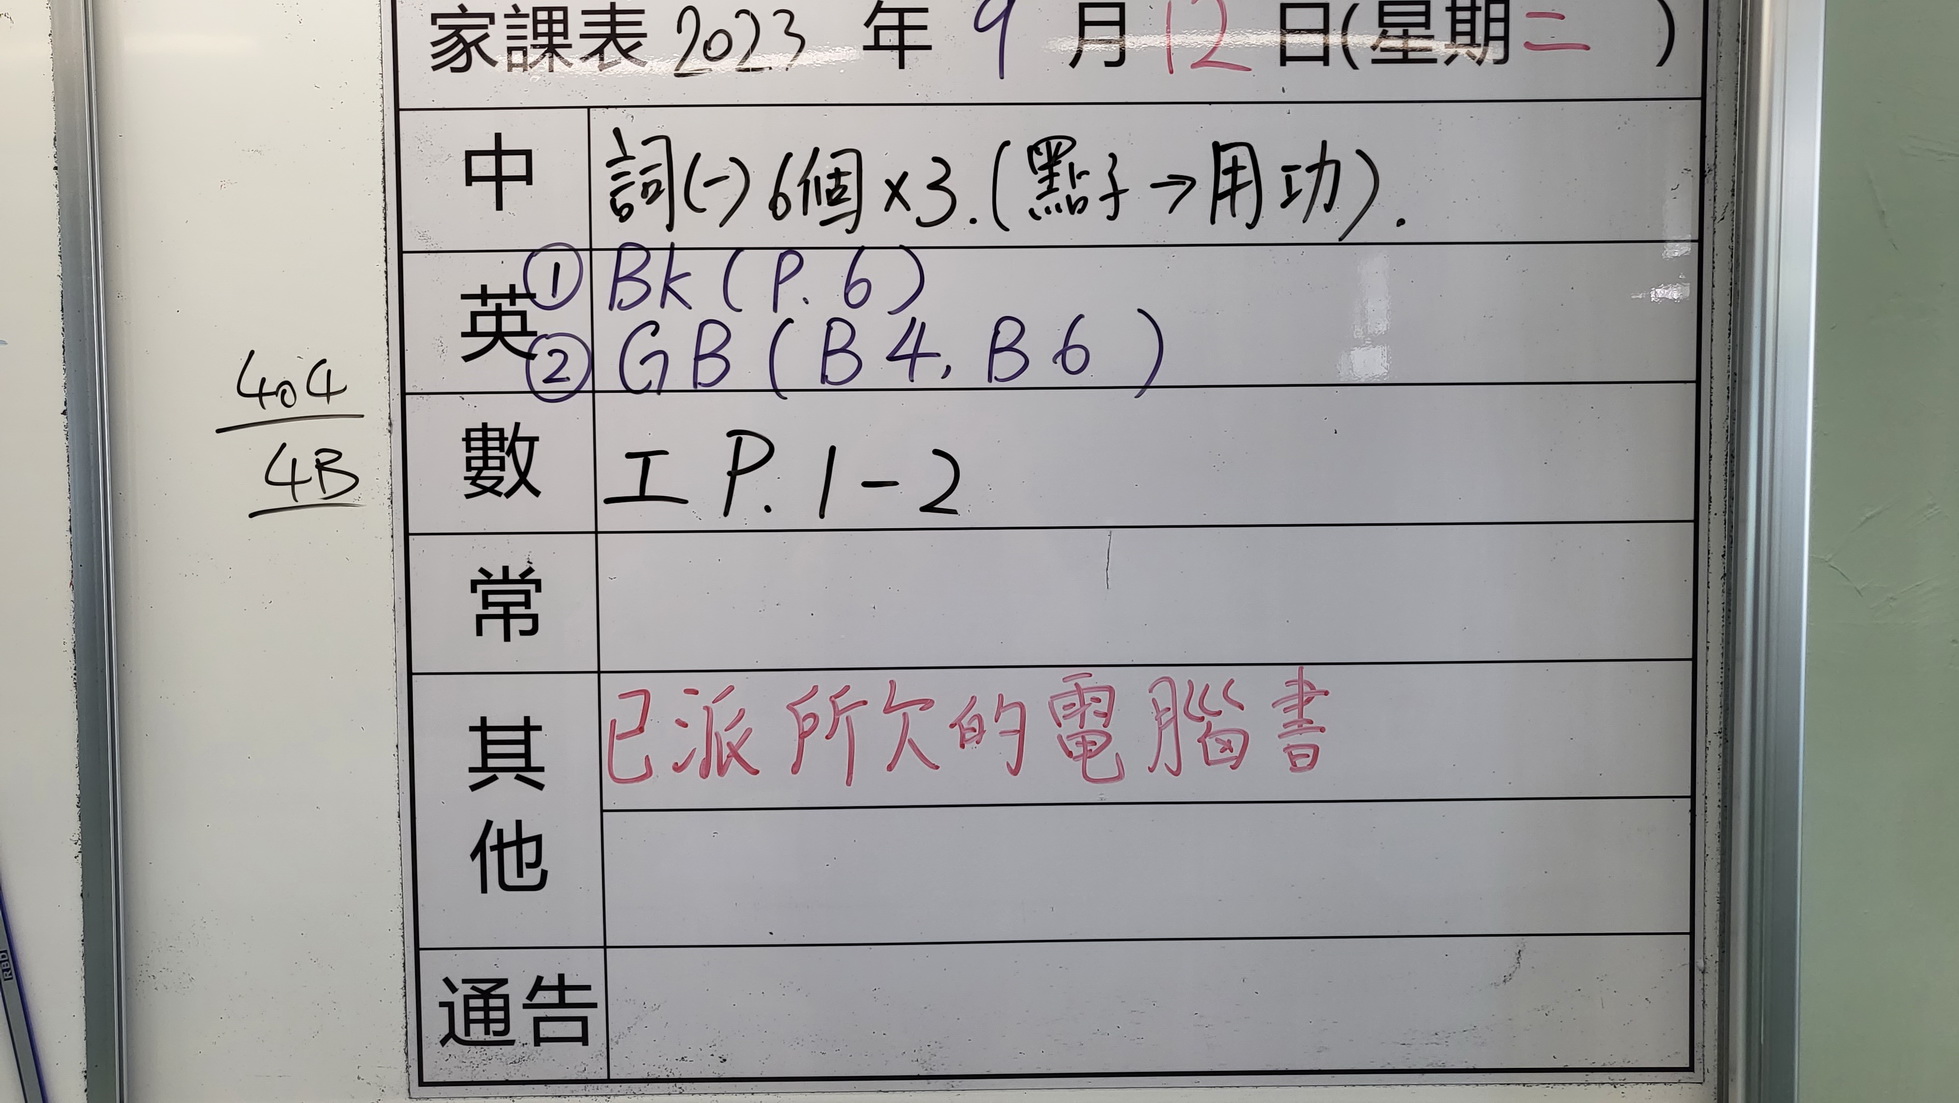 家課表 2023 年 9 月 12 日(星期二 )
中 詞(一) 6個 ×3. (點子→用功).
英 ① BK (P. 6)
② GB ( B4, B6 )
404
4B
數 工 P. 1-2
常
其他 已派所欠的電腦書
通告
RBD